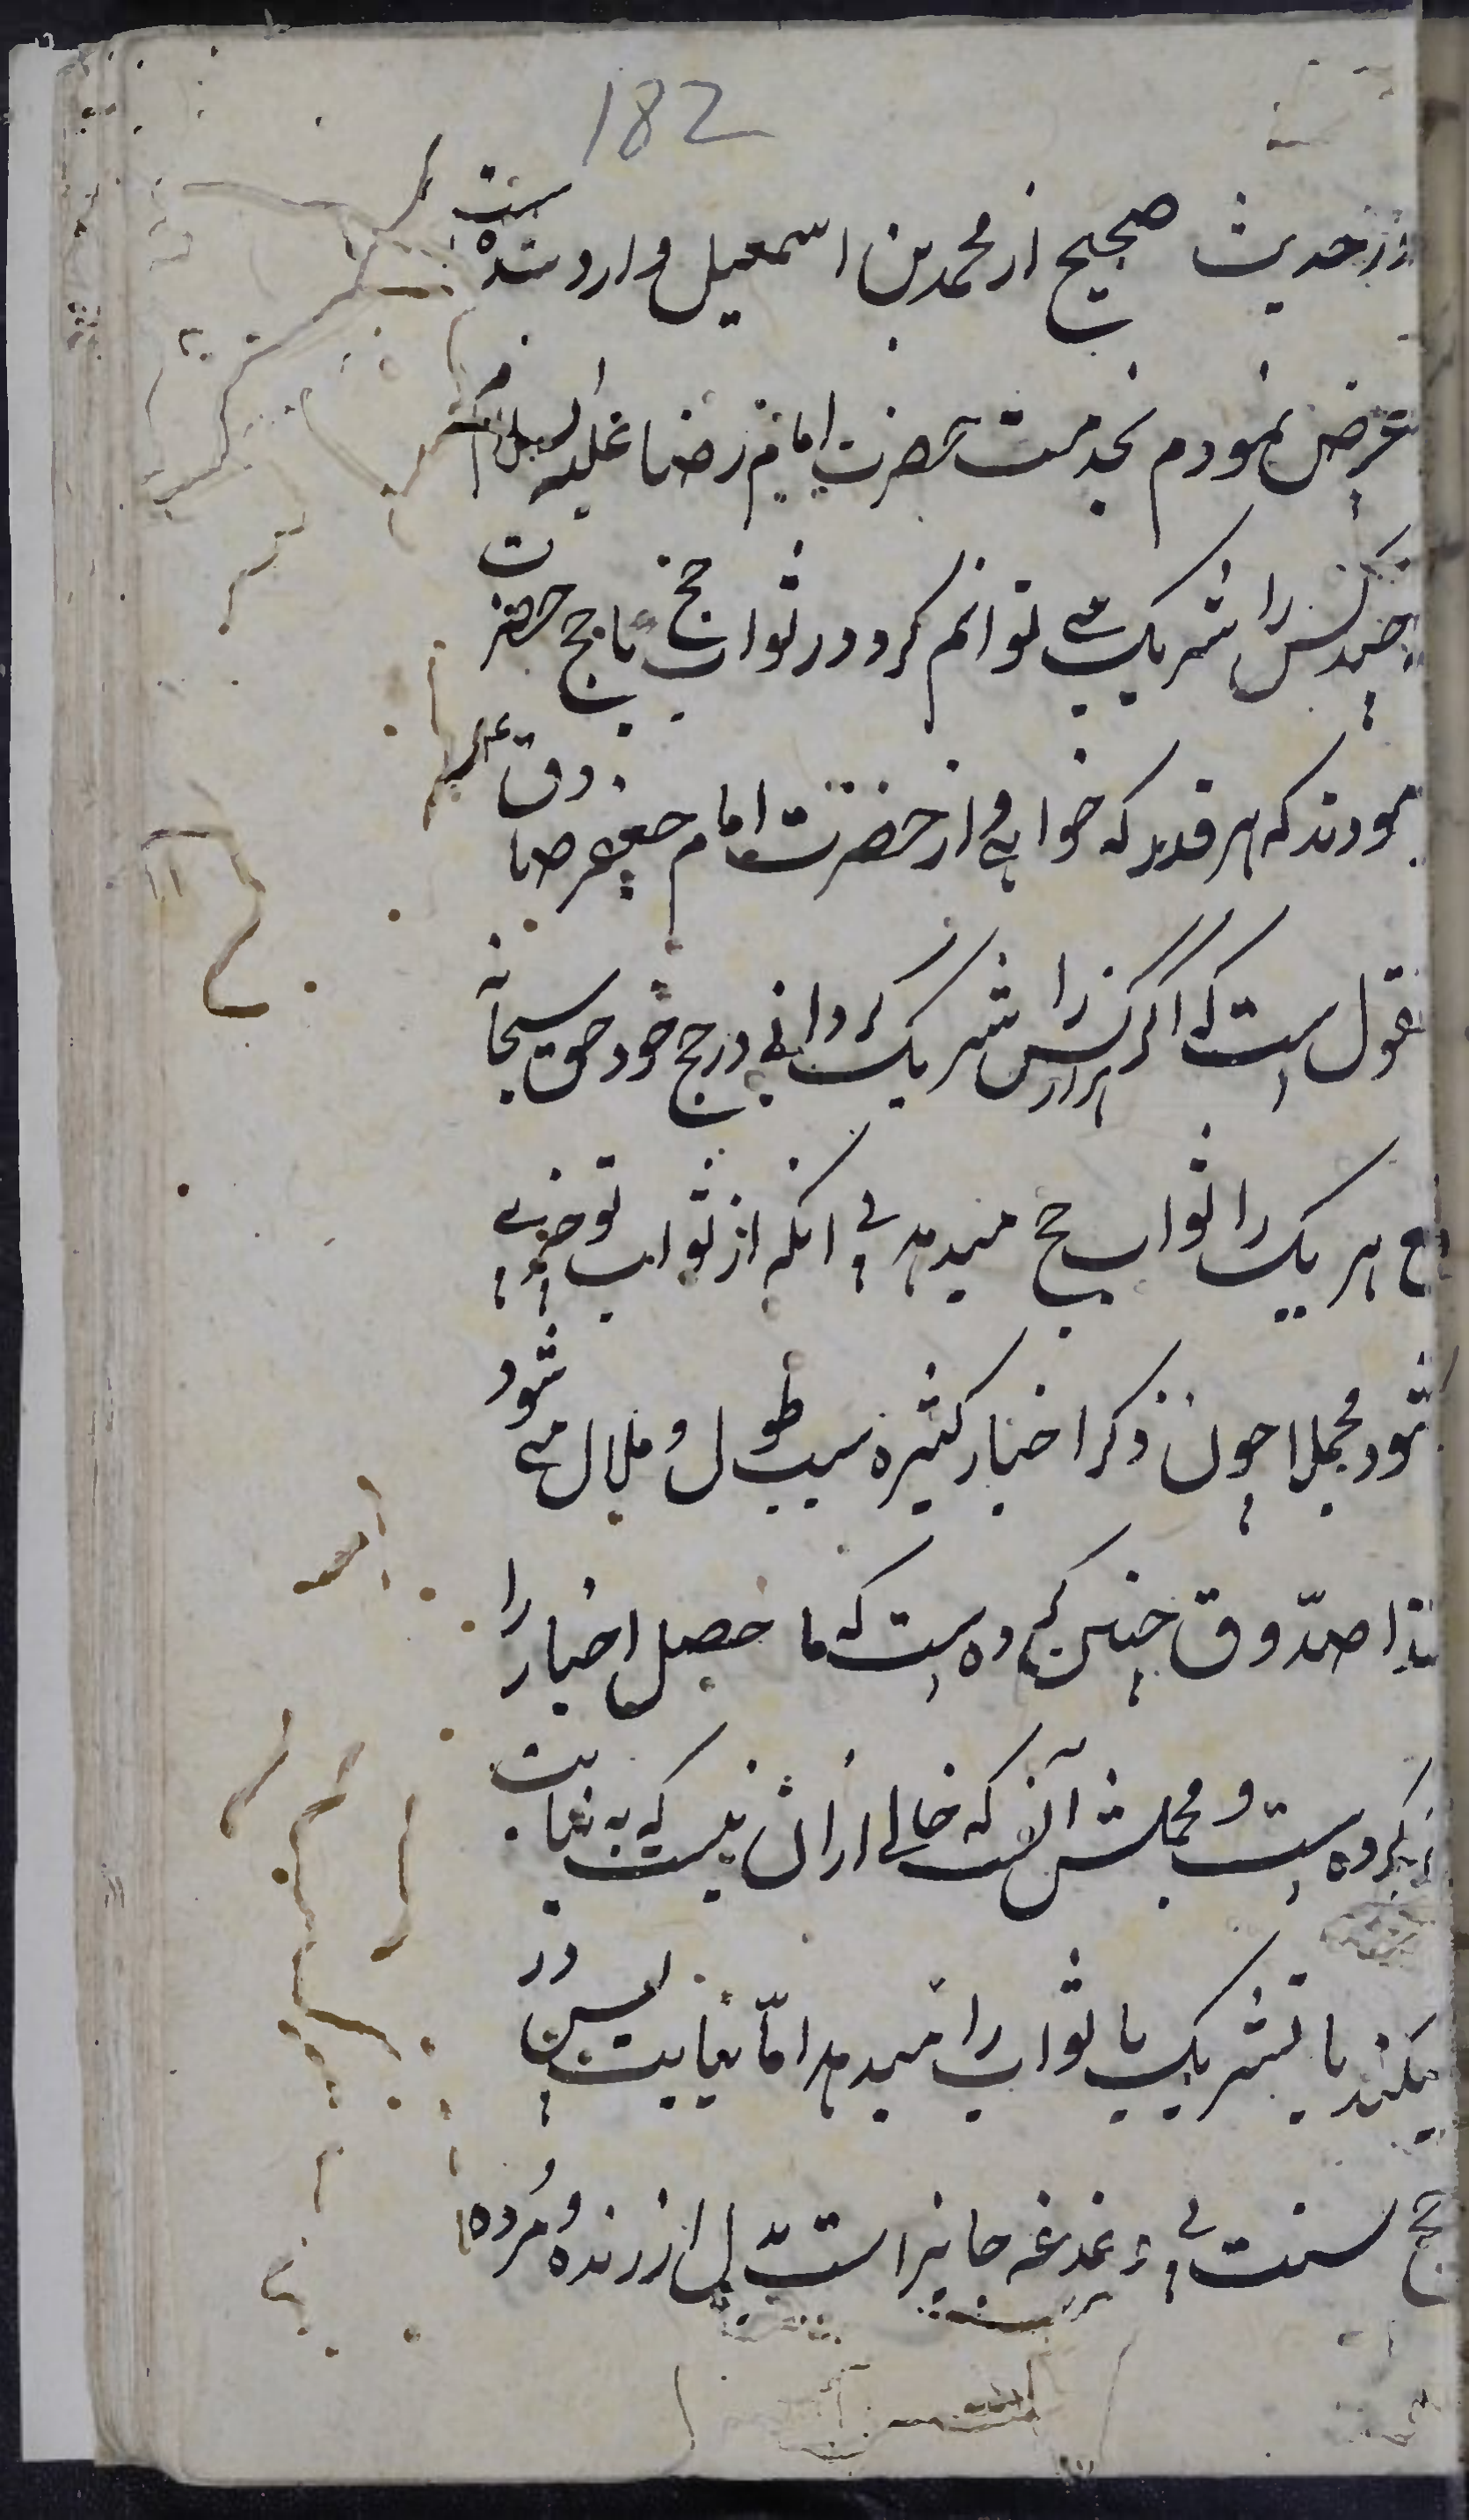 182
در حدیث صحیح از محمد بن اسمعیل وارد شده ست
عرض نمودم بخدمت حضرت امام رضا علیه السلام
چند کس را شریک می توانم کرد در ثواب حج یا حج حضرت
مودند که هر قدر که خواهی و از حضرت امام جعفر صادق ع
قول است که اگر هزار کس را شریک گردانی در حج خود حق سبحانه
ع هر یک را ثواب حج میدهد بی انکه از ثواب تو چیزی
شود مجملا چون ذکر اخبار کثیره سبب طول و ملال می شود
لذا صدّوق چنین کرده است که ما حصل اخبار را
ذکر کرده است و مجملش آنست که خالی ازان نیست که به نیابت
میکند یا تشریک یا ثواب را میدهد امّا نیابت پس در
حج سنت بی دغدغه جایز است بدل از زنده و مُرده